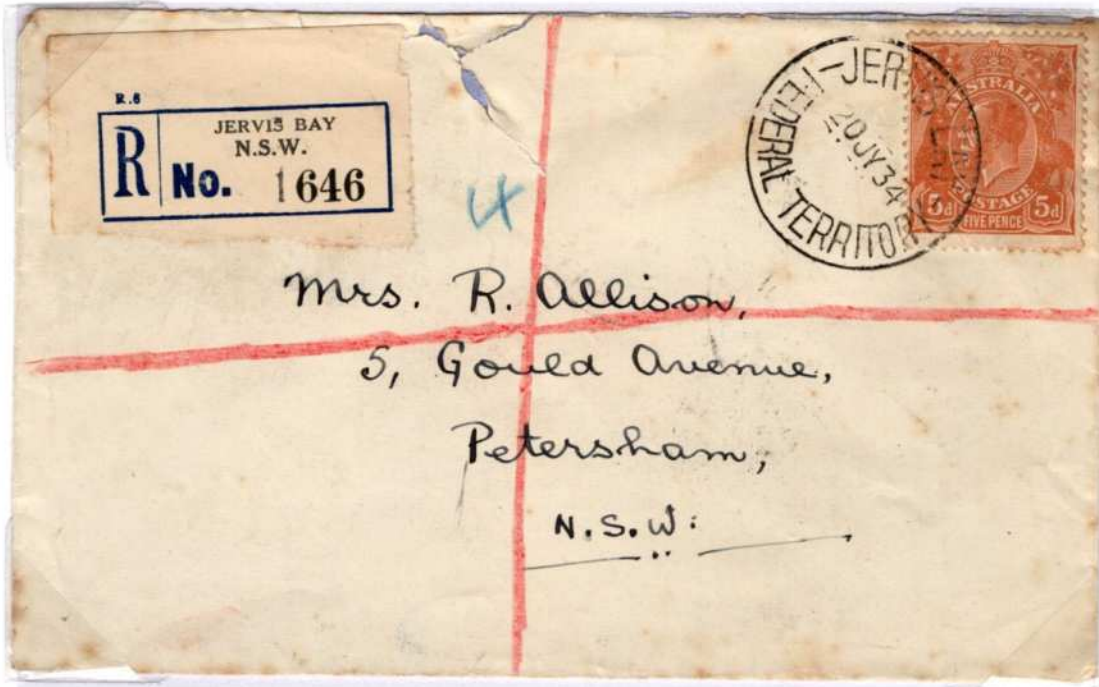 R.6
JERVIS BAY
N.S.W.
R No. 1646
4
JERVIS BAY
FEDERAL TERRITORY
20 JY 34
AUSTRALIA
POSTAGE
5d FIVE PENCE 5d
Mrs. R. Allison,
5, Gould Avenue,
Petersham,
N.S.W.